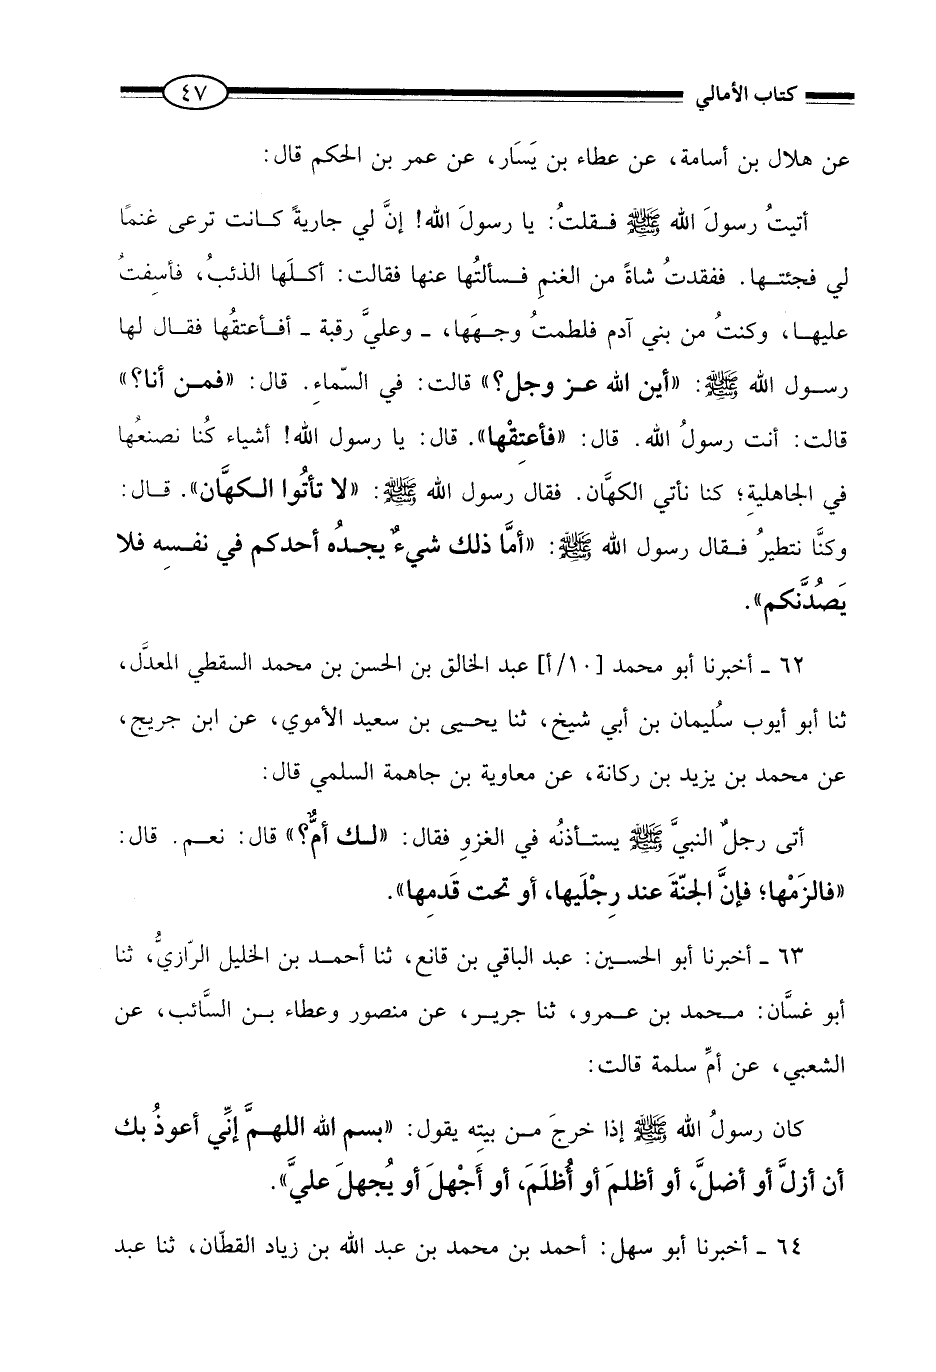 كتاب الأمالي ٤٧
عن هلال بن أسامة، عن عطاء بن يَسَار، عن عمر بن الحكم قال:
أتيتُ رسولَ الله ﷺ فـقلتُ: يا رسولَ الله! إنَّ لي جاريةً كـانت ترعى غنمًا
لي فجئتـها. ففقدتُ شاةً من الغنمِ فـسألتُها عنها فقالت: أكـلَها الذئبُ، فأسِفتُ
عليهـا، وكنتُ من بني آدم فلطمتُ وجـهَها، ـ وعليَّ رقبة ـ أفـأعتقُها فقـال لها
رسـول الله ﷺ: «أين الله عـز وجل؟» قالت: في السّماءِ. قال: «فمـن أنا؟»
قالت: أنت رسولُ الله. قال: «فأعتِقْها». قال: يا رسول الله! أشياء كُنا نصنعُها
في الجاهلية؛ كنا نأتي الكهَّان. فقال رسول الله ﷺ: «لا تأتُوا الـكهَّان». قـال:
وكنَّا نتطيرُ فـقال رسول الله ﷺ: «أمَّا ذلك شيءٌ يجدُه أحدكم في نفسـِه فلا
يَصُدَّنكم».
٦٢ ـ أخبرنا أبو محمد [١٠/أ] عبد الخالق بن الحسن بن محمد السقطي المعدَّل،
ثنا أبو أيوب سُليمان بن أبي شيخ، ثنا يحيـى بن سعيد الأموي، عن ابن جريج،
عن محمد بن يزيد بن ركانة، عن معاوية بن جاهمة السلمي قال:
أتى رجلٌ النبيَّ ﷺ يستـأذنُه في الغزوِ فقال: «لـك أمٌّ؟» قال: نعـم. قال:
«فالزَمْها؛ فإنَّ الجنّةَ عند رِجْلَيها، أو تحت قَدمِها».
٦٣ ـ أخبرنا أبو الحسـين: عبد الباقي بن قانع، ثنا أحمـد بن الخليل الرّازيُّ، ثنا
أبو غسَّان: مـحمد بن عـمرو، ثنا جريـر، عن منصور وعطاء بـن السَّائب، عن
الشعبي، عن أمِّ سلمة قالت:
كان رسولُ الله ﷺ إذا خرجَ مـن بيتِه يقول: «بسم الله اللهـمَّ إنِّي أعوذُ بك
أن أزلَّ أو أضلَّ، أو أظلمَ أو أُظلَمَ، أو أَجْهلَ أو يُجهلَ عليَّ».
٦٤ ـ أخبرنا أبو سهل: أحمد بن محمد بن عبد الله بن زياد القطّان، ثنا عبد